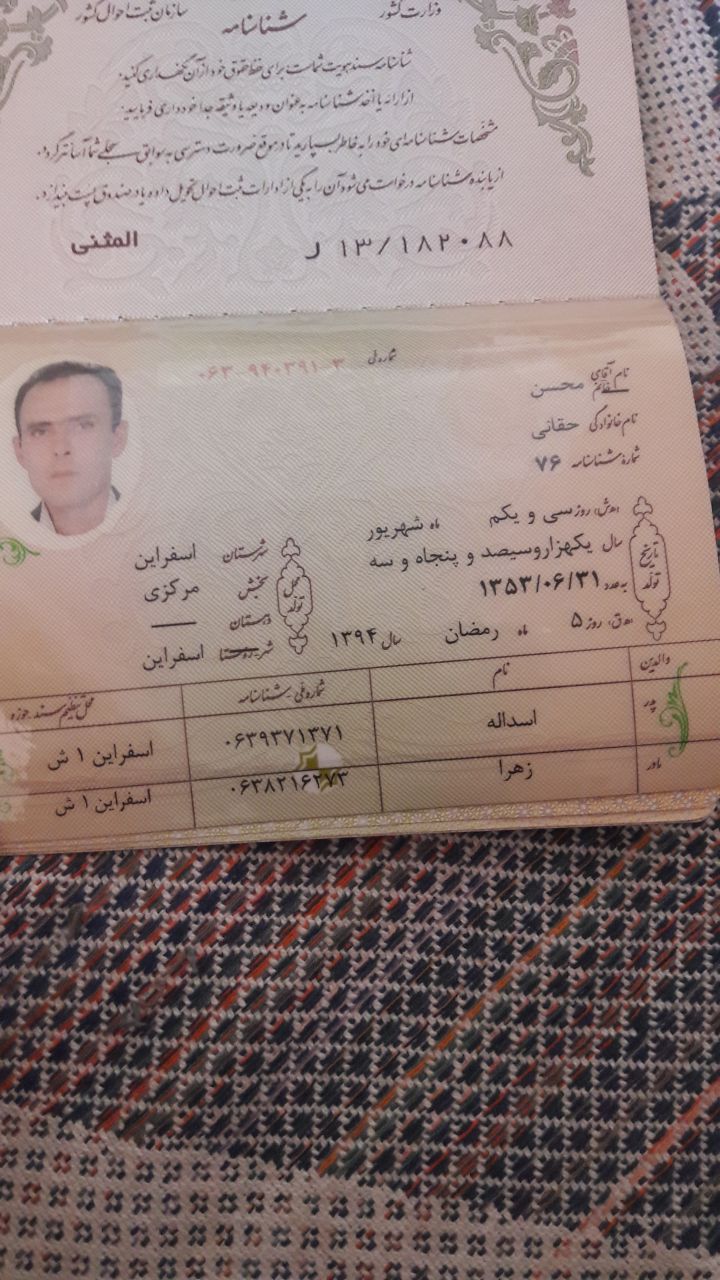 وزارت کشور
سازمان ثبت احوال کشور
شناسنامه
شناسنامه سند هویت شماست برای حفظ حقوق خود از آن نگهداری کنید.
از ارائه یا اخذ شناسنامه به عنوان ودیعه یا وثیقه جداً خودداری فرمایید.
مشخصات شناسنامه‌ای خود را به خاطر بسپارید تا در موقع ضرورت دسترسی به سوابق سجلی شما آسانتر گردد.
از یابنده شناسنامه درخواست می‌شود آن را به یکی از ادارات ثبت احوال تحویل داده یا در صندوق پست بیندازد.
ر ۱۳/۱۸۲۰۸۸
المثنی
شماره ملی ۰۶۳-۹۴۰۳۹۱-۳
نام آقای خانم محسن
نام خانوادگی حقانی
شماره شناسنامه ۷۶
تاریخ تولد
ه.ش: روز سی و یکم ماه شهریور
سال یکهزاروسیصد و پنجاه و سه
به عدد ۱۳۵۳/۰۶/۳۱
ه.ق: روز ۵ ماه رمضان سال ۱۳۹۴
محل تولد
شهرستان اسفراین
بخش مرکزی
دهستان ——
شهر روستا اسفراین
والدین نام شماره ملی-شناسنامه محل تنظیم سند حوزه
پدر اسداله ۰۶۳۹۳۷۱۳۷۱ اسفراین ۱ ش
مادر زهرا ۰۶۳۸۲۱۶۲۷۳ اسفراین ۱ ش